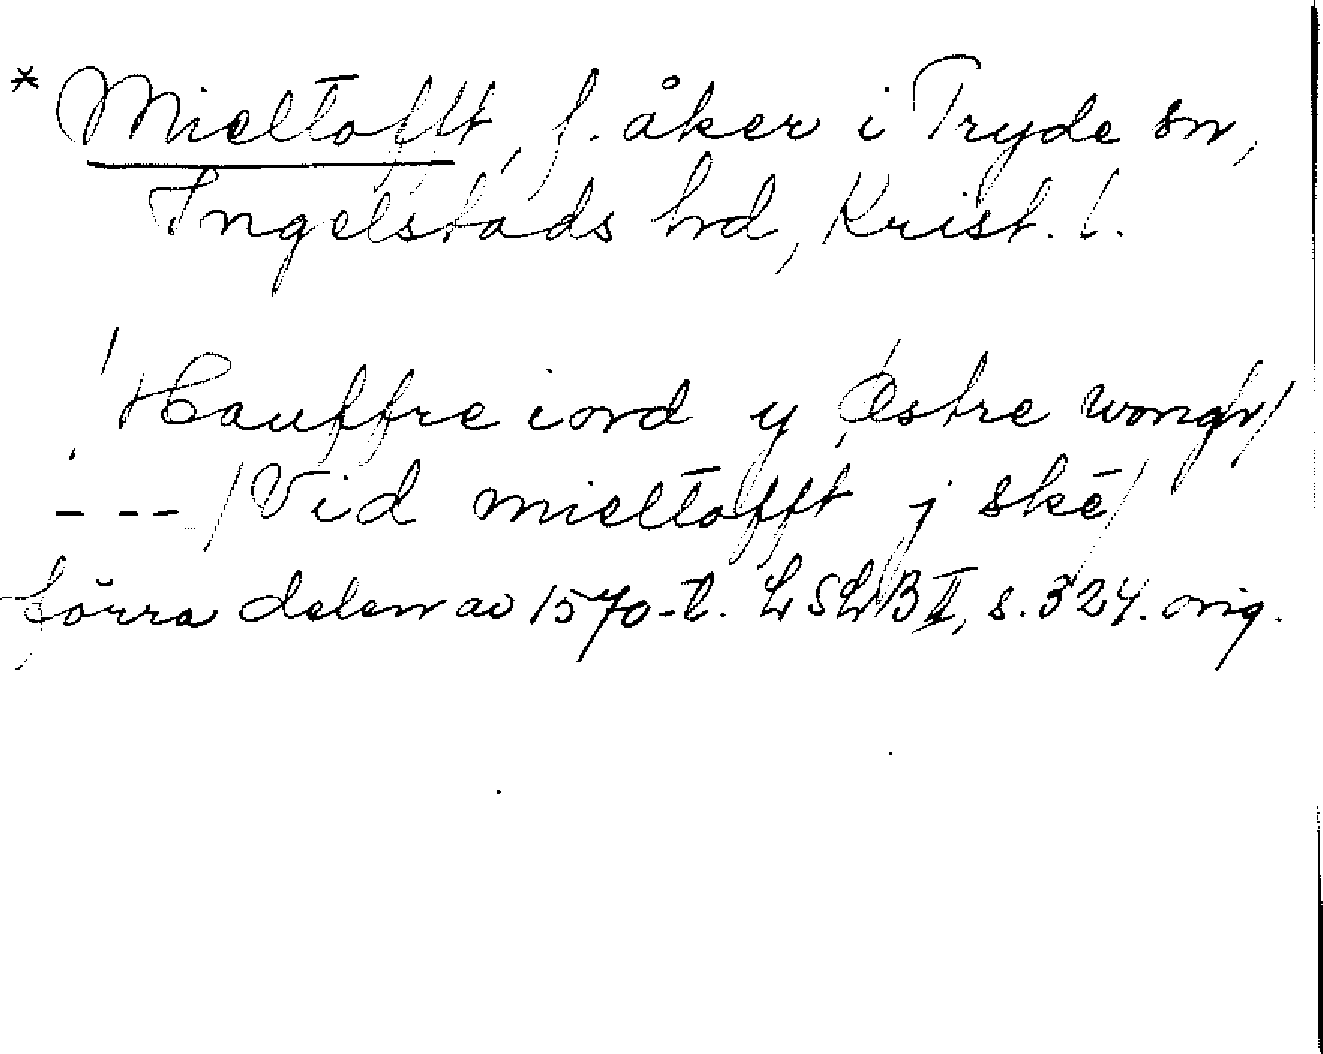 * Mieltofft, f. åker i Tryde sn,
Ingelstads hd, Krist. l.
/ Hauffre iord y Østre wongh /
- - - / Vid mieltofft j skē /
förra delen av 1570-t. LSLB II, s. 324. orig.